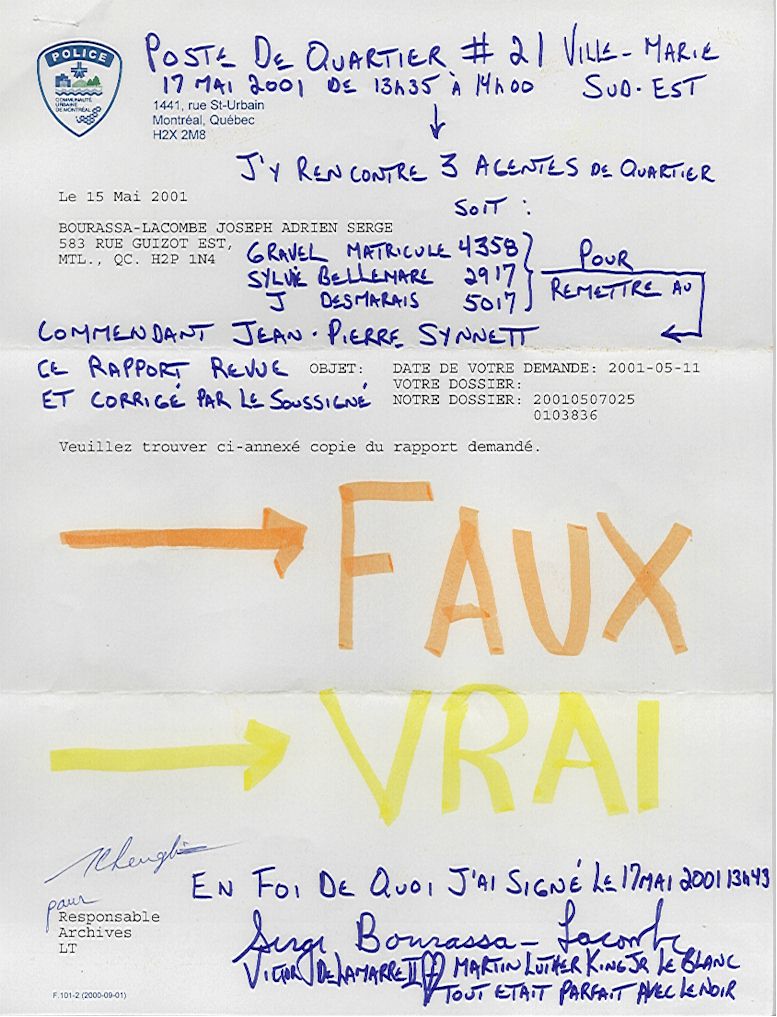 POSTE DE QUARTIER # 21 VILLE-MARIE
17 MAI 2001 DE 13h35 À 14h00 SUD-EST
POLICE
COMMUNAUTÉ
URBAINE
DE MONTRÉAL
1441, rue St-Urbain
Montréal, Québec
H2X 2M8
J'Y RENCONTRE 3 AGENTES DE QUARTIER
SOIT :
Le 15 Mai 2001
BOURASSA-LACOMBE JOSEPH ADRIEN SERGE
583 RUE GUIZOT EST,
MTL., QC. H2P 1N4
GRAVEL MATRICULE 4358
SYLVIE BELLEMARE 2917
J DESMARAIS 5017
POUR
REMETTRE AU
COMMENDANT JEAN-PIERRE SYNNETT
CE RAPPORT REVUE
ET CORRIGÉ PAR LE SOUSSIGNÉ
OBJET: DATE DE VOTRE DEMANDE: 2001-05-11
VOTRE DOSSIER:
NOTRE DOSSIER: 20010507025
0103836
Veuillez trouver ci-annexé copie du rapport demandé.
FAUX
VRAI
pour
Responsable
Archives
LT
EN FOI DE QUOI J'AI SIGNÉ LE 17 MAI 2001 13h43
Serge Bourassa-Lacombe
VICTOR DELAMARRE II MARTIN LUTHER KING JR LE BLANC
TOUT ETAIT PARFAIT AVEC LE NOIR
F.101-2 (2000-09-01)